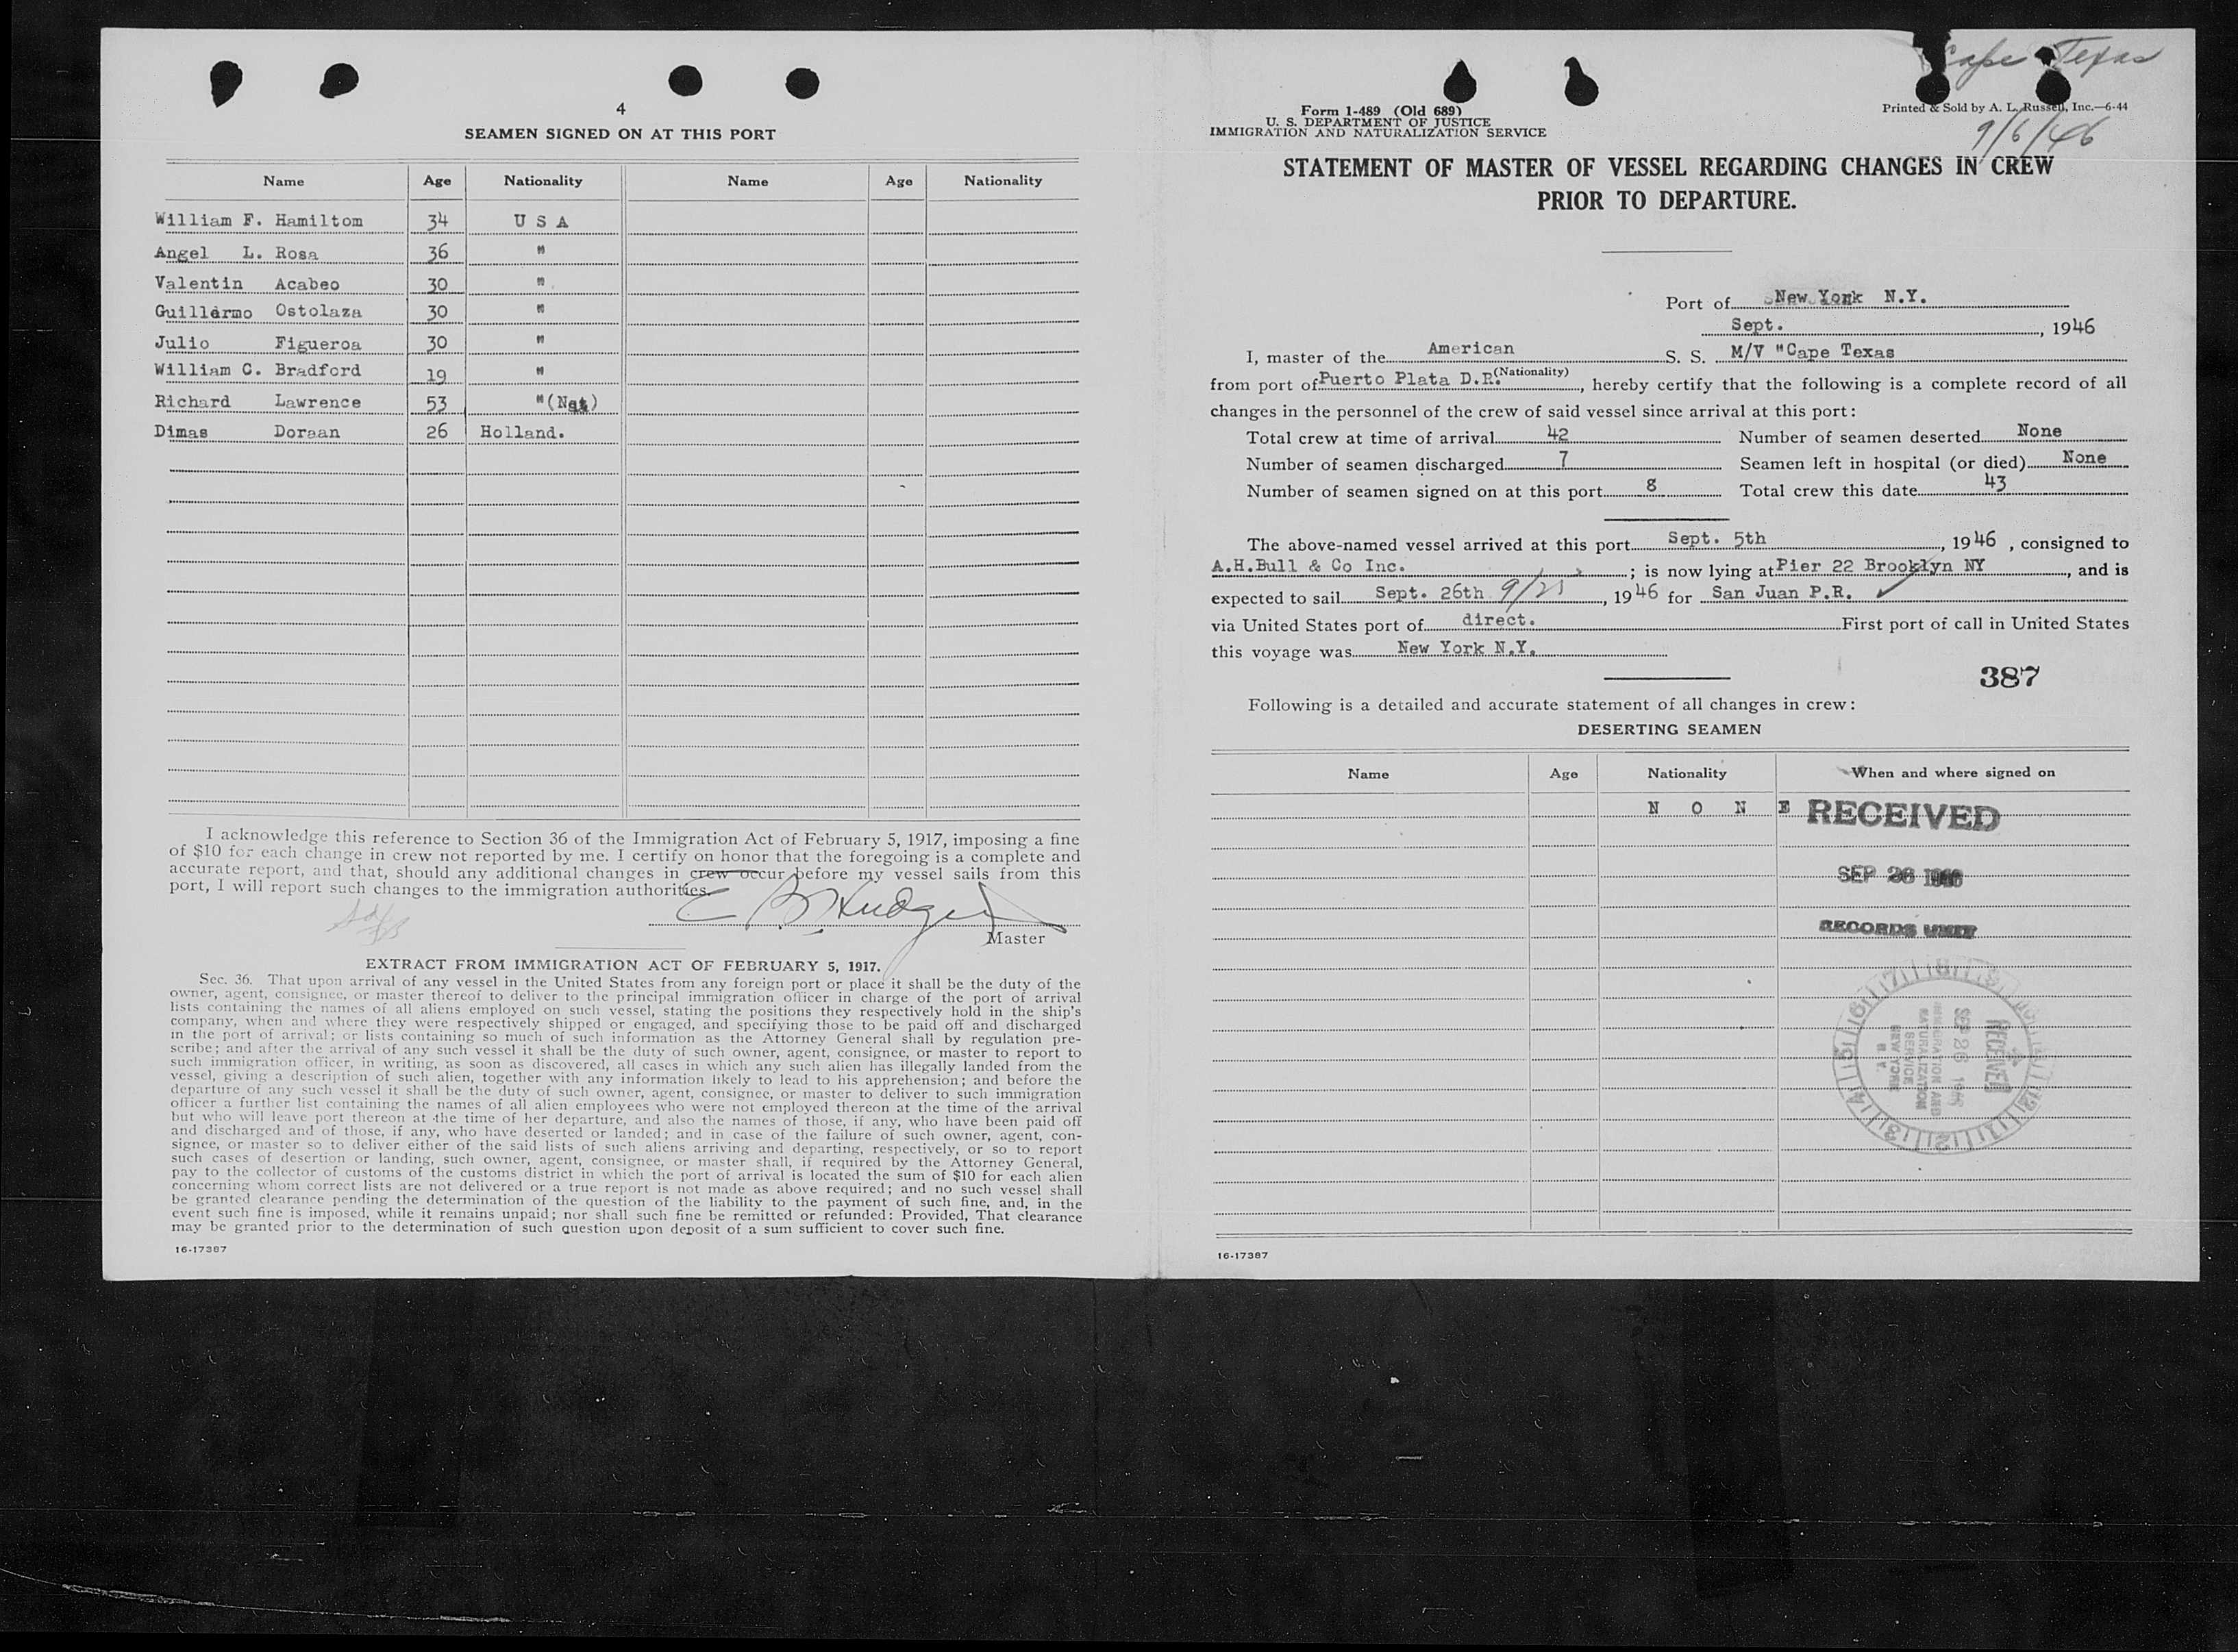 4
SEAMEN SIGNED ON AT THIS PORT
Name Age Nationality Name Age Nationality
William F. Hamiltom 34 U S A
Angel L. Rosa 36 "
Valentin Acabeo 30 "
Guillermo Ostolaza 30 "
Julio Figueroa 30 "
William C. Bradford 19 "
Richard Lawrence 53 "(Nat)
Dimas Doraan 26 Holland.
I acknowledge this reference to Section 36 of the Immigration Act of February 5, 1917, imposing a fine
of $10 for each change in crew not reported by me. I certify on honor that the foregoing is a complete and
accurate report, and that, should any additional changes in crew occur before my vessel sails from this
port, I will report such changes to the immigration authorities.
Master
EXTRACT FROM IMMIGRATION ACT OF FEBRUARY 5, 1917.
Sec. 36. That upon arrival of any vessel in the United States from any foreign port or place it shall be the duty of the
owner, agent, consignee, or master thereof to deliver to the principal immigration officer in charge of the port of arrival
lists containing the names of all aliens employed on such vessel, stating the positions they respectively hold in the ship's
company, when and where they were respectively shipped or engaged, and specifying those to be paid off and discharged
in the port of arrival; or lists containing so much of such information as the Attorney General shall by regulation pre-
scribe; and after the arrival of any such vessel it shall be the duty of such owner, agent, consignee, or master to report to
such immigration officer, in writing, as soon as discovered, all cases in which any such alien has illegally landed from the
vessel, giving a description of such alien, together with any information likely to lead to his apprehension; and before the
departure of any such vessel it shall be the duty of such owner, agent, consignee, or master to deliver to such immigration
officer a further list containing the names of all alien employees who were not employed thereon at the time of the arrival
but who will leave port thereon at the time of her departure, and also the names of those, if any, who have been paid off
and discharged and of those, if any, who have deserted or landed; and in case of the failure of such owner, agent, con-
signee, or master so to deliver either of the said lists of such aliens arriving and departing, respectively, or so to report
such cases of desertion or landing, such owner, agent, consignee, or master shall, if required by the Attorney General,
pay to the collector of customs of the customs district in which the port of arrival is located the sum of $10 for each alien
concerning whom correct lists are not delivered or a true report is not made as above required; and no such vessel shall
be granted clearance pending the determination of the question of the liability to the payment of such fine, and, in the
event such fine is imposed, while it remains unpaid; nor shall such fine be remitted or refunded: Provided, That clearance
may be granted prior to the determination of such question upon deposit of a sum sufficient to cover such fine.
16-17387
Cape Texas
Form 1-489 (Old 689)
U. S. DEPARTMENT OF JUSTICE
IMMIGRATION AND NATURALIZATION SERVICE
Printed & Sold by A. L. Russell, Inc.—6-44
9/6/46
STATEMENT OF MASTER OF VESSEL REGARDING CHANGES IN CREW
PRIOR TO DEPARTURE.
Port of New York N.Y.
Sept. , 1946
I, master of the American S. S. M/V "Cape Texas
(Nationality)
from port of Puerto Plata D.R. , hereby certify that the following is a complete record of all
changes in the personnel of the crew of said vessel since arrival at this port:
Total crew at time of arrival 42 Number of seamen deserted None
Number of seamen discharged 7 Seamen left in hospital (or died) None
Number of seamen signed on at this port 8 Total crew this date 43
The above-named vessel arrived at this port Sept. 5th , 1946 , consigned to
A.H.Bull & Co Inc. ; is now lying at Pier 22 Brooklyn NY , and is
expected to sail Sept. 26th , 1946 for San Juan P.R.
via United States port of direct. First port of call in United States
this voyage was New York N.Y.
387
Following is a detailed and accurate statement of all changes in crew:
DESERTING SEAMEN
Name Age Nationality When and where signed on
N O N E
RECEIVED
SEP 26 1946
RECORDS UNIT
RECEIVED
SEP 26 1946
IMMIGRATION AND
NATURALIZATION
SERVICE
NEW YORK
N. Y.
16-17387